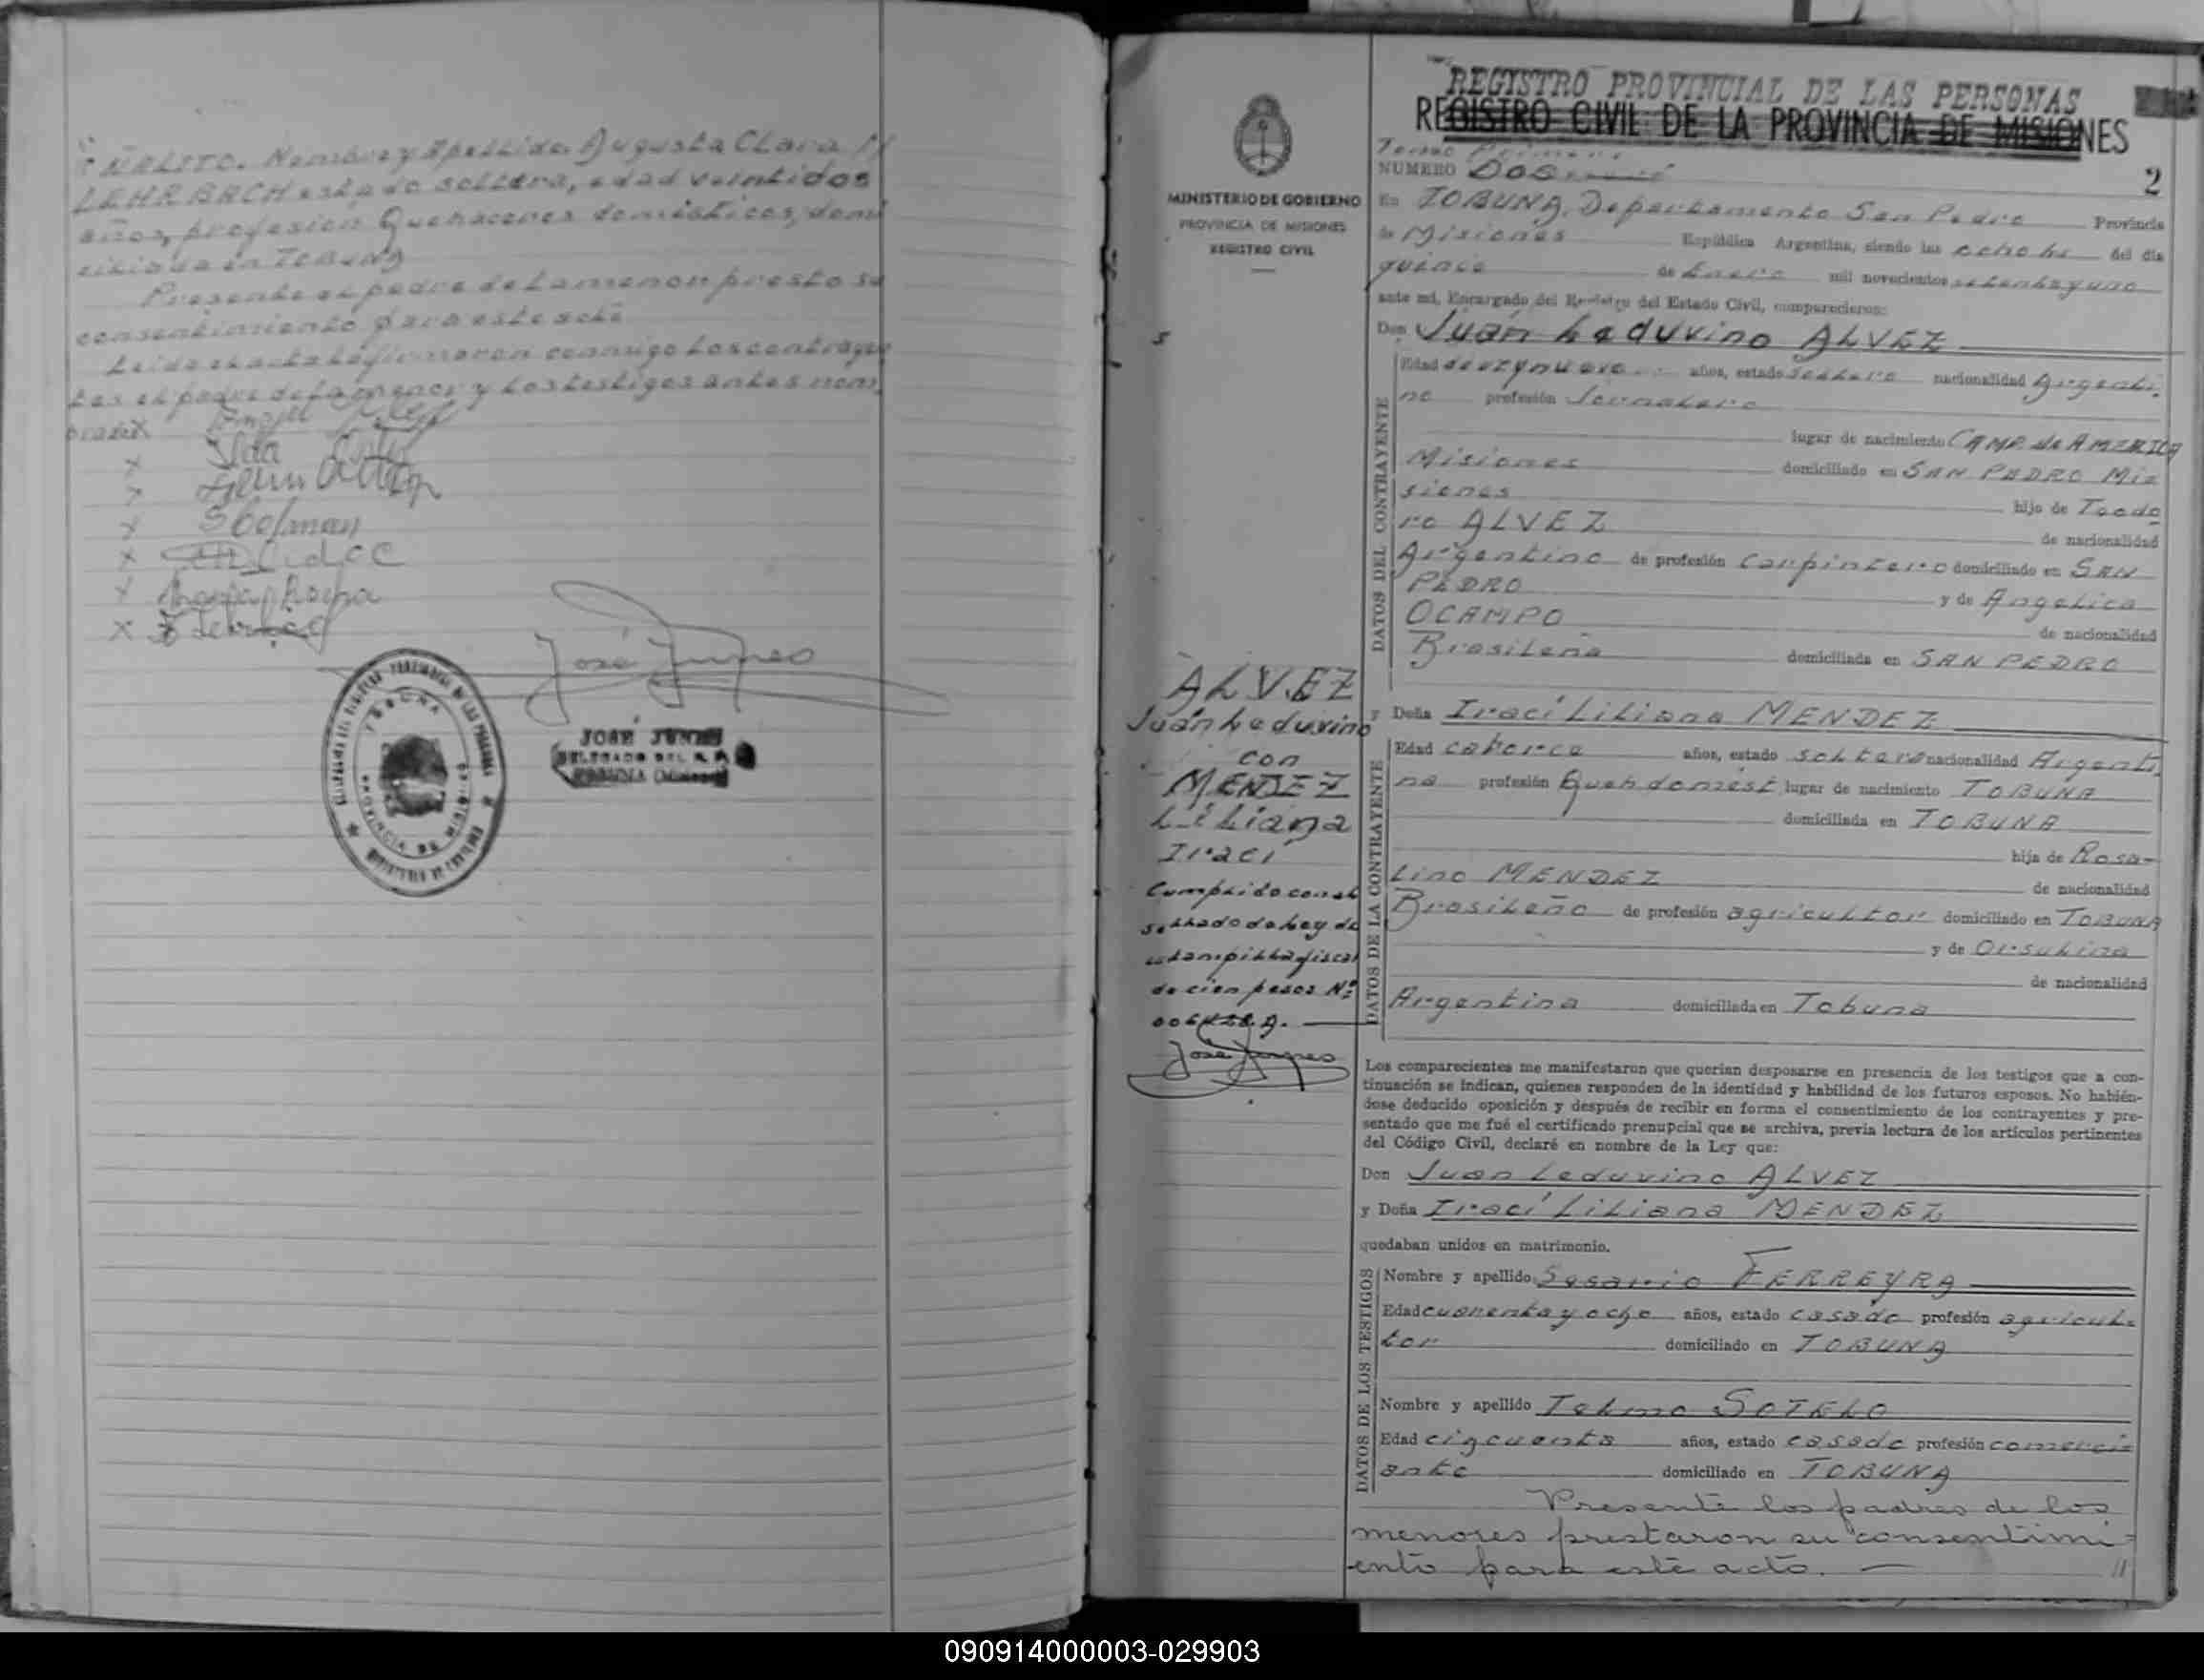 Nombre y Apellido Augusta Clara //
LEHRBACH estado soltera, edad veintidos
años, profesion Quehaceres domésticos, domi
ciliada en TOBUNA
Presente el padre de la menor presto su
consentimiento para este acto
Leida el acta la firmaron conmigo los contrayen
tes el padre de la menor y los testigos antes nom
José Junes
JOSE JUNES
DELEGADO DEL R. P.
MINISTERIO DE GOBIERNO
PROVINCIA DE MISIONES
REGISTRO CIVIL
ALVEZ
Juán Leduvino
con
MENDEZ
Liliana
Iraci
Cumplido con el
sellado de ley de
estampilla fiscal
de cien pesos Nº
José Junes
REGISTRO PROVINCIAL DE LAS PERSONAS
REGISTRO CIVIL DE LA PROVINCIA DE MISIONES
Tomo Primero
NUMERO DOS
2
En TOBUNA, Departamento San Pedro Provincia
de Misiones República Argentina, siendo las ocho hs del día
quince de Enero mil novecientos setenta y uno
ante mí, Encargado del Registro del Estado Civil, comparecieron:
Don Juán Leduvino ALVEZ
DATOS DEL CONTRAYENTE
Edad diez y nueve años, estado soltero nacionalidad Argenti
no profesión Jornalero
lugar de nacimiento CAMP. de AMERICA
Misiones domiciliado en SAN PEDRO Mi
siones hijo de Teodo
ro ALVEZ de nacionalidad
Argentino de profesión Carpintero domiciliado en SAN
PEDRO y de Angelica
OCAMPO de nacionalidad
Brasileña domiciliada en SAN PEDRO
y Doña Iraci Liliana MENDEZ
DATOS DE LA CONTRAYENTE
Edad catorce años, estado soltera nacionalidad Argenti
na profesión Queh domést lugar de nacimiento TOBUNA
domiciliada en TOBUNA
hija de Rosa-
Lino MENDEZ de nacionalidad
Brasileño de profesión agricultor domiciliado en TOBUNA
y de Orsulina
de nacionalidad
Argentina domiciliada en Tobuna
Los comparecientes me manifestaron que querían desposarse en presencia de los testigos que a con-
tinuación se indican, quienes responden de la identidad y habilidad de los futuros esposos. No habién-
dose deducido oposición y después de recibir en forma el consentimiento de los contrayentes y pre-
sentado que me fué el certificado prenupcial que se archiva, previa lectura de los artículos pertinentes
del Código Civil, declaré en nombre de la Ley que:
Don Juan Leduvino ALVEZ
y Doña Iraci Liliana MENDEZ
quedaban unidos en matrimonio.
DATOS DE LOS TESTIGOS
Nombre y apellido Sesario FERREYRA
Edad cuarenta y ocho años, estado casado profesión agricul
tor domiciliado en TOBUNA
Nombre y apellido Telmo SOTELO
Edad cincuenta años, estado casado profesión comerci
ante domiciliado en TOBUNA
Presente los padres de los
menores prestaron su consentimi-
ento para este acto. — //
090914000003-029903